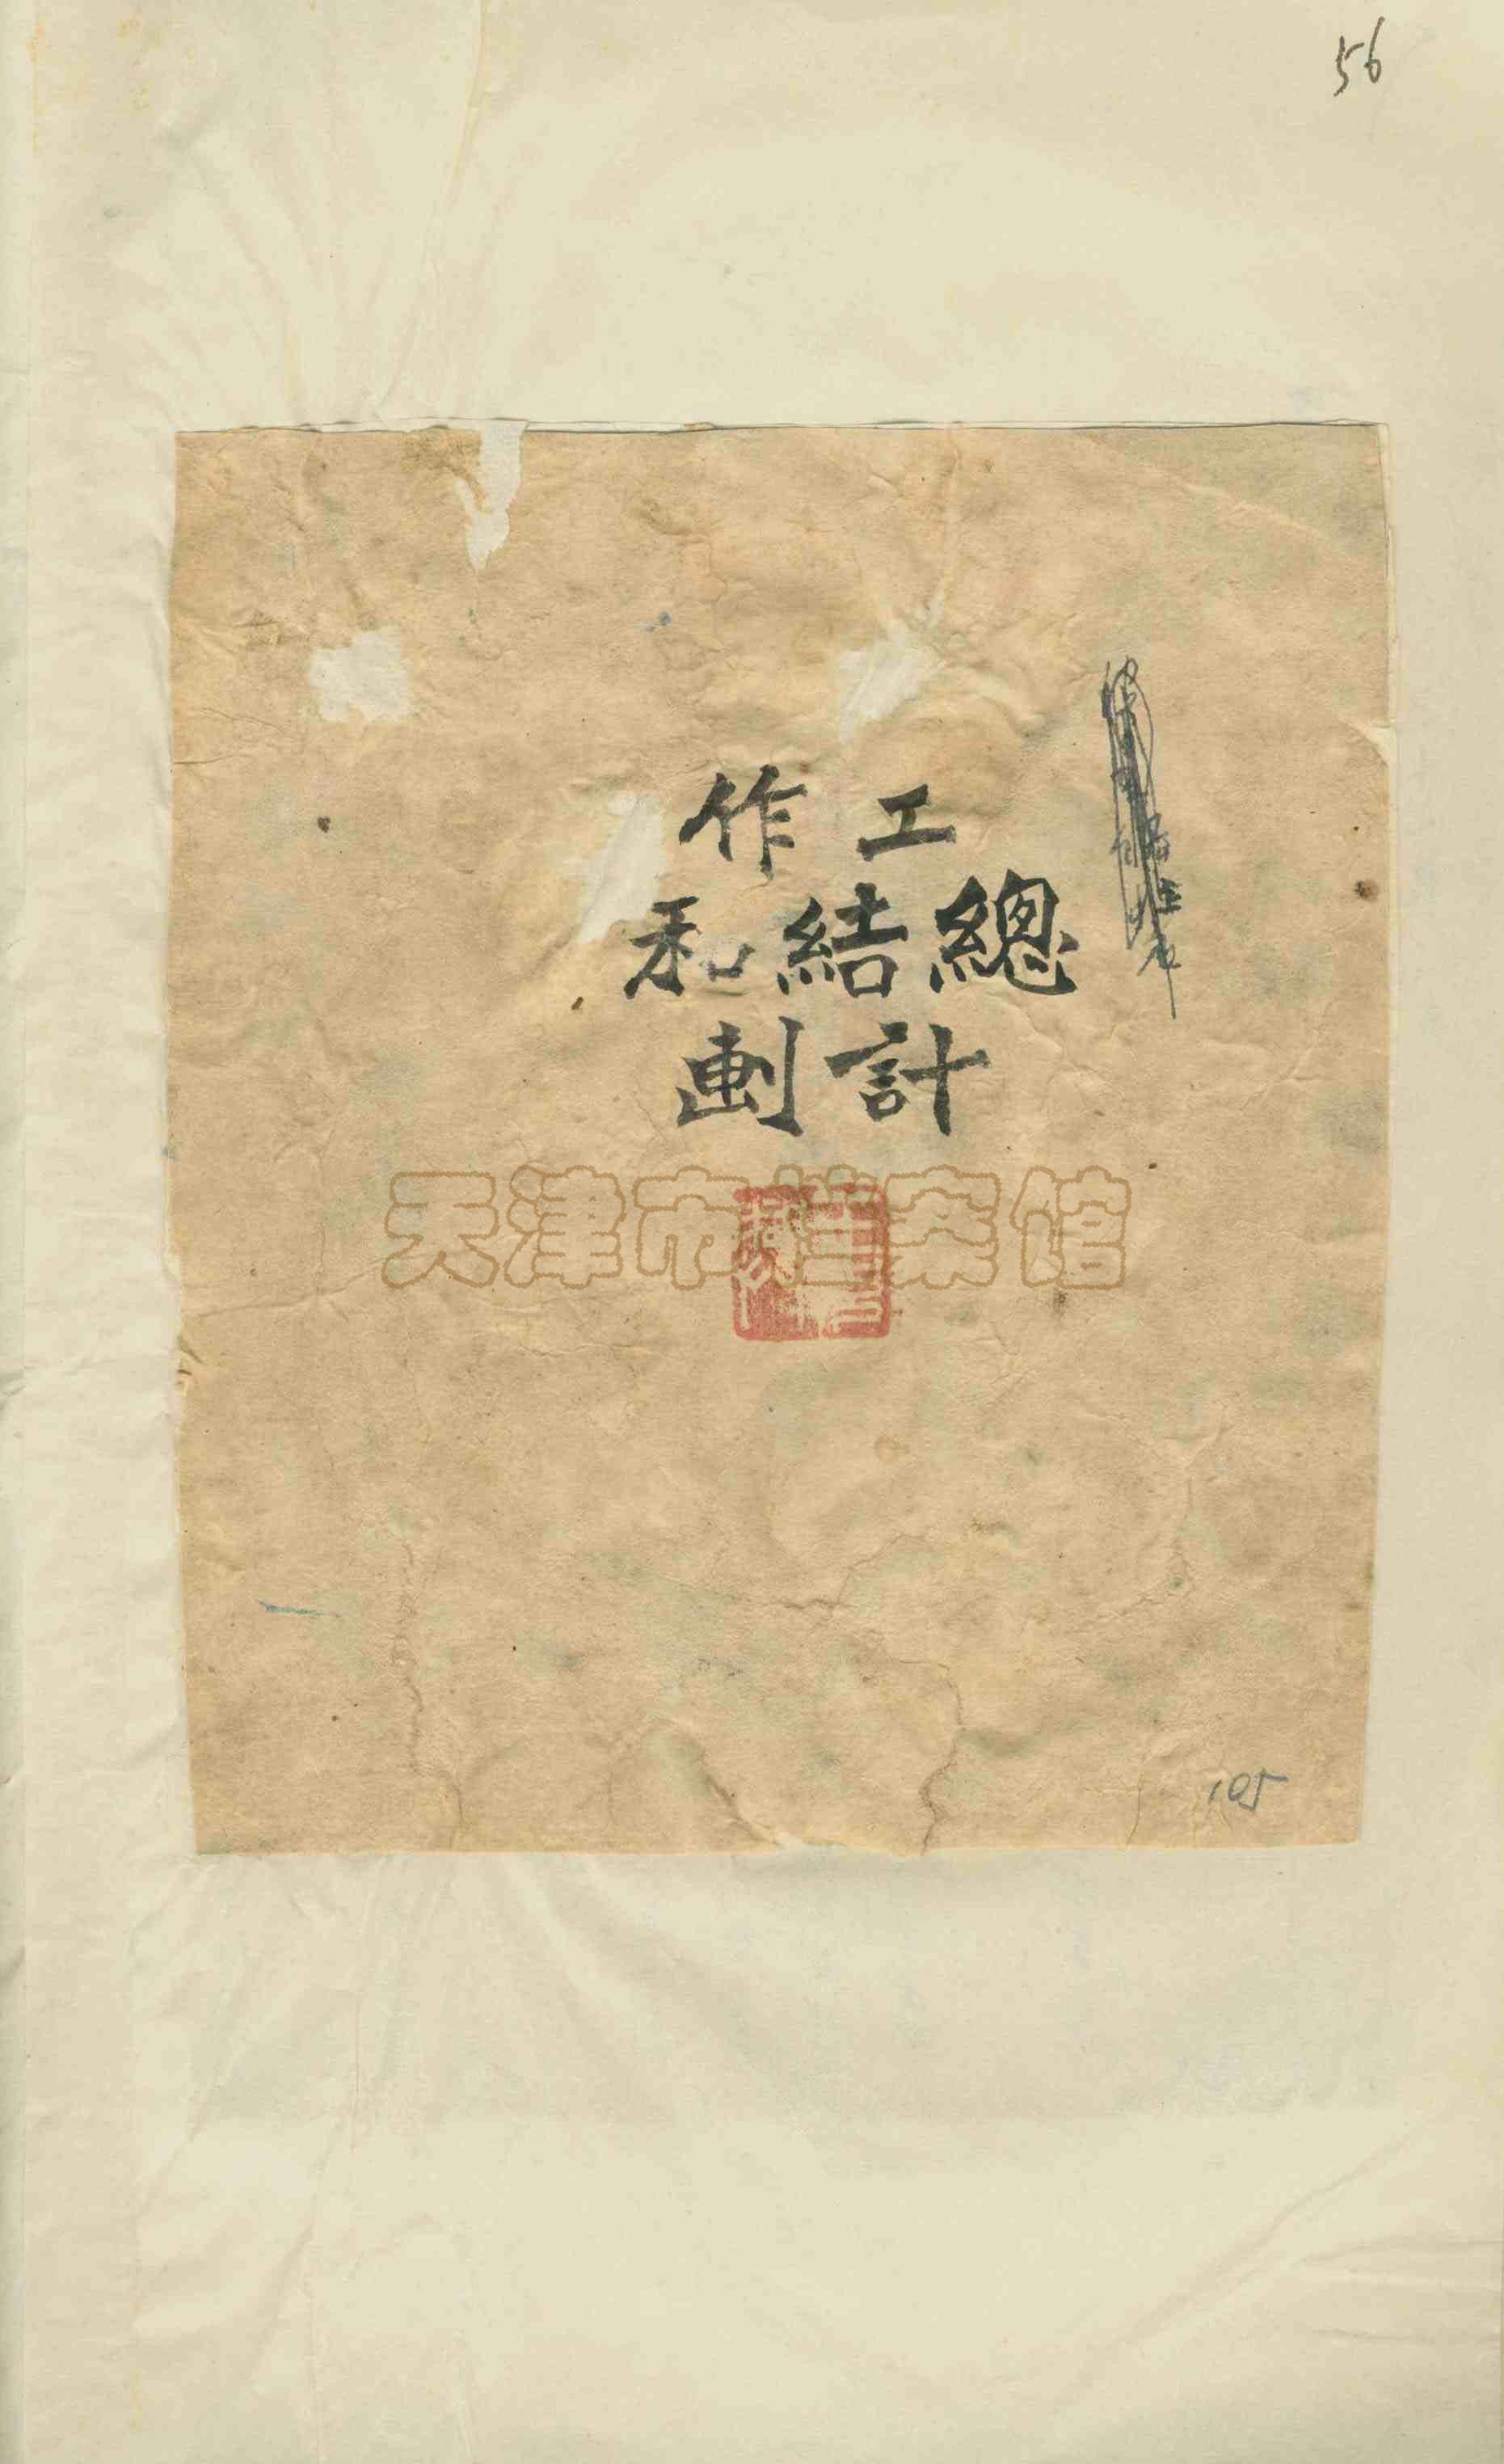 56
工作
總結和
計劃
天津市档案馆
105